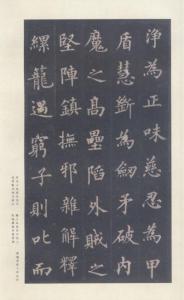 淨為正味慈忍為甲
盾慧斷為劒矛破内
魔之高壘陷外賊之
堅陣鎮撫邪雜解釋
縲籠遇窮子則叱而